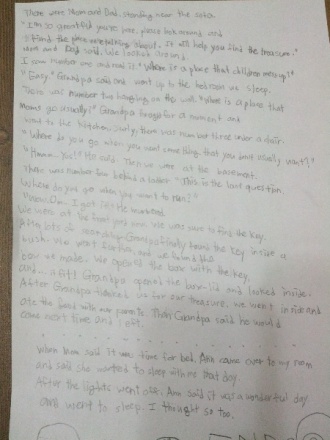 There were Mom and Dad, standing near the sofa.
"I'm so grateful you're here, please look around and
find the place we're talking about. It will help you find the treasure."
Mom and Dad said. We looked around.
I saw number one and read it. "Where is a place that children
"Easy." Grandpa said and went up to the bedroom we sleep.
There was number two hanging on the wall. "Where is a place that
moms go usually?" Grandpa thought for a moment and
went to the kitchen. Surely, there was number three under a chair.
"Where do you go when you want something that you don't usually want?"
"Hmmm. Yes!" He said. Then we were at the basement.
There was number four behind a ladder. "This is the last question.
Where do you go when you want to run?"
I get it!" He
We were at the front yard now. We was sure to find the key.
After lots of Grandpa finally found the key inside a
bush. We went and we found the
box we made. We opened the box with the key,
and... a gift! Grandpa opened the box-lid and looked inside.
After Grandpa thanked us for our treasure, we went inside and
ate the food with our parents. Then Grandpa said he would
come next time and left.
When Mom said it was time for bed, Ann came over to my room
and said she wanted to sleep with me that day.
After the lights went off, Ann said it was a wonderful day
and went to sleep. I thought so too.